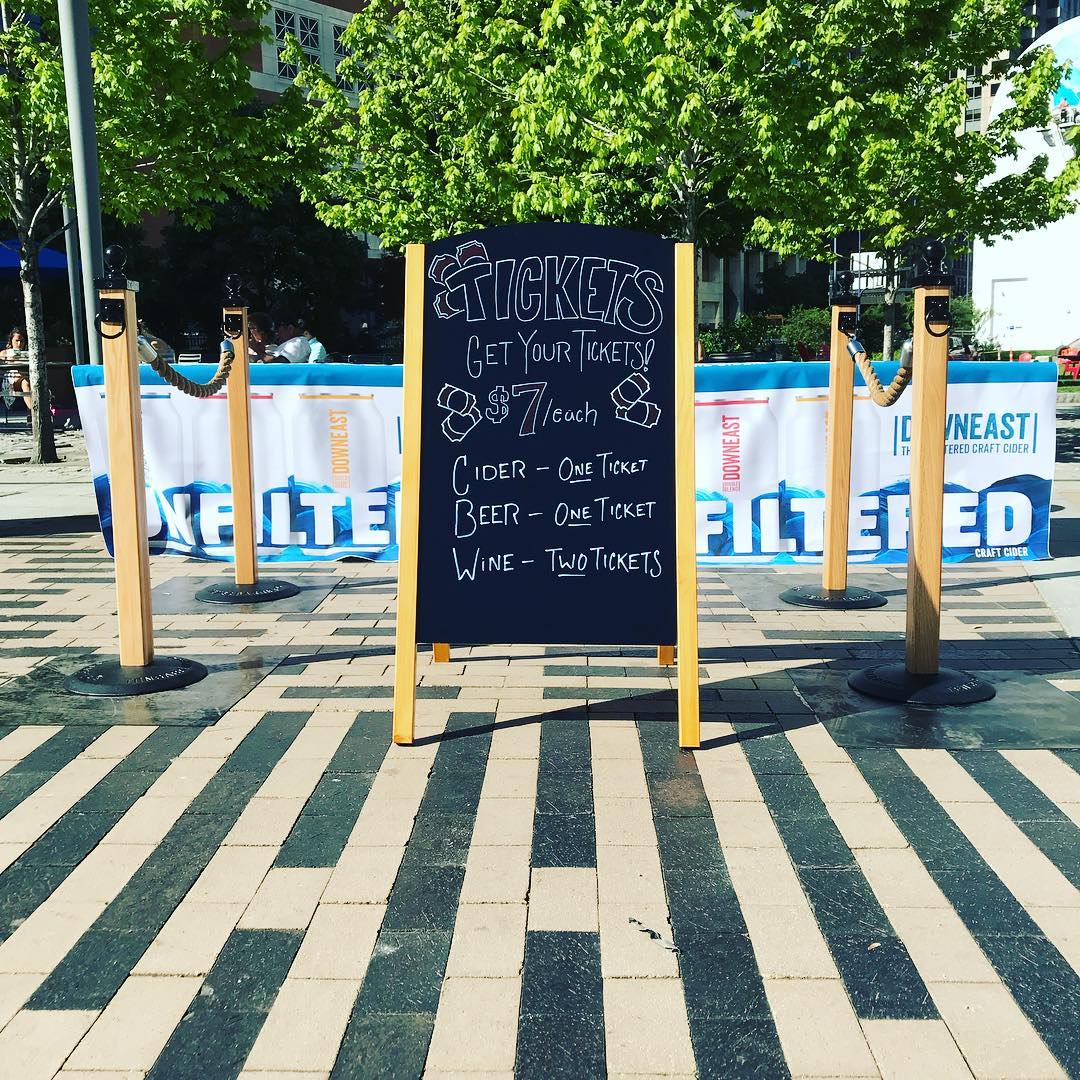 TICKETS
GET YOUR TICKETS!
$7/each
CIDER - ONE TICKET
BEER - ONE TICKET
WINE - TWO TICKETS
DOWNEAST
UNFILTE
DOWNEAST
FILTERED
CRAFT CIDER
DOWNEAST
CRAFT CIDER